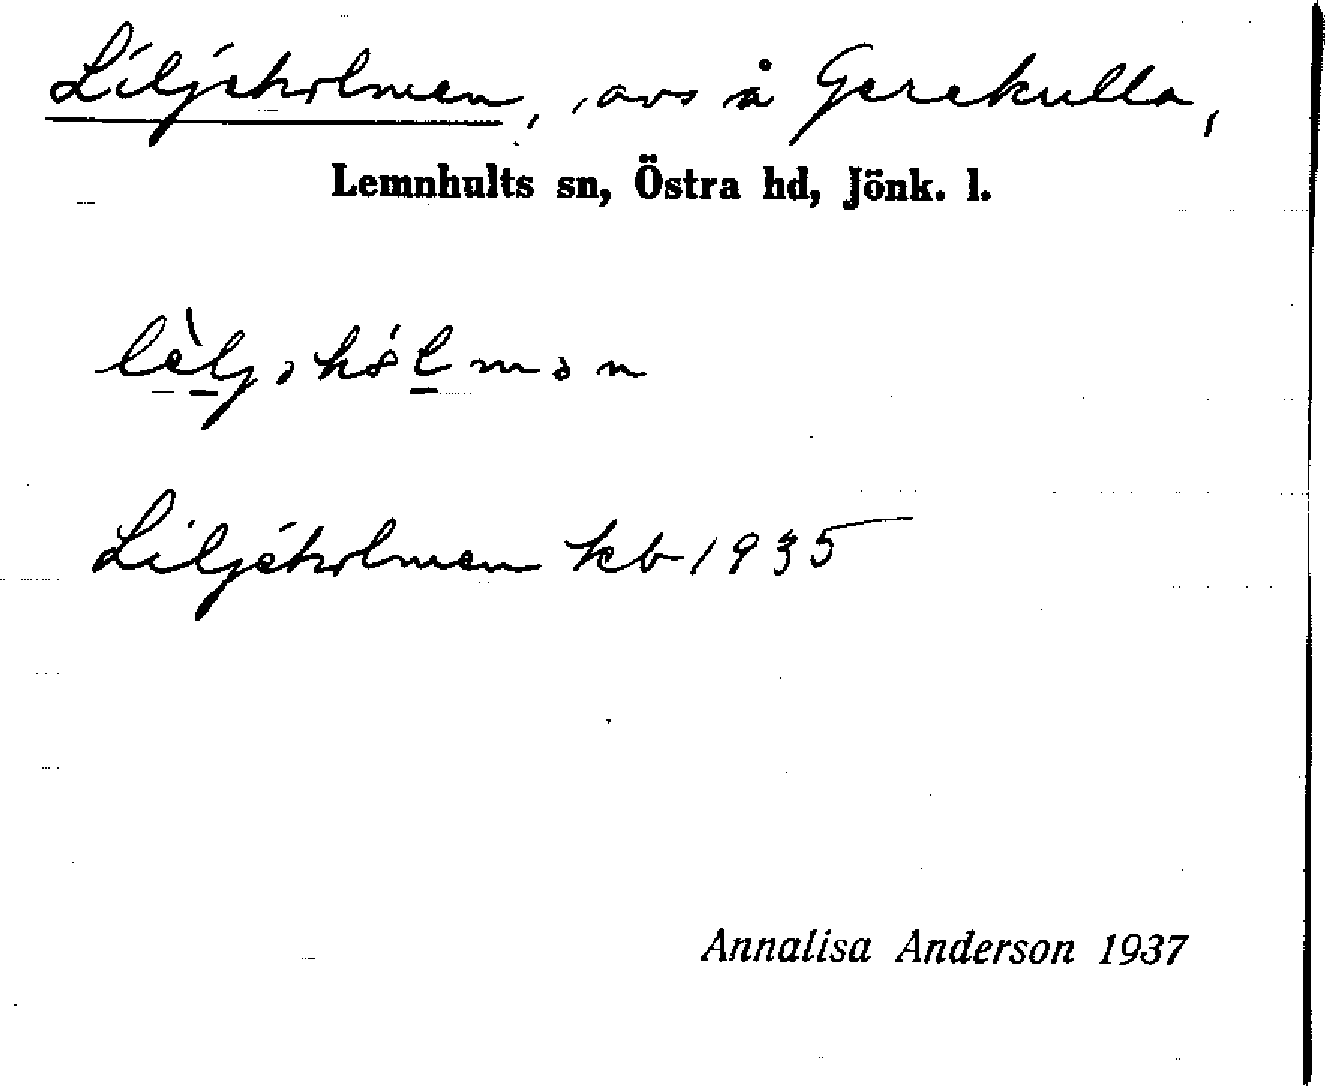 Liljeholmen, avs å Gerekulla,
Lemnhults sn, Östra hd, Jönk. l.
lèljəhólmən
Liljeholmen kb 1935
Annalisa Anderson 1937